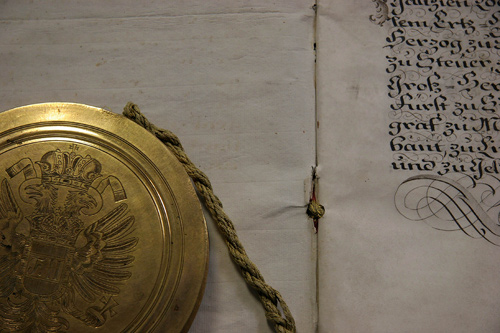 Galizien
Ertz-
Herzog zu
zu Steüer,
Groß-Her
Fürst zu S
graf zu M
bant, zu
und zu